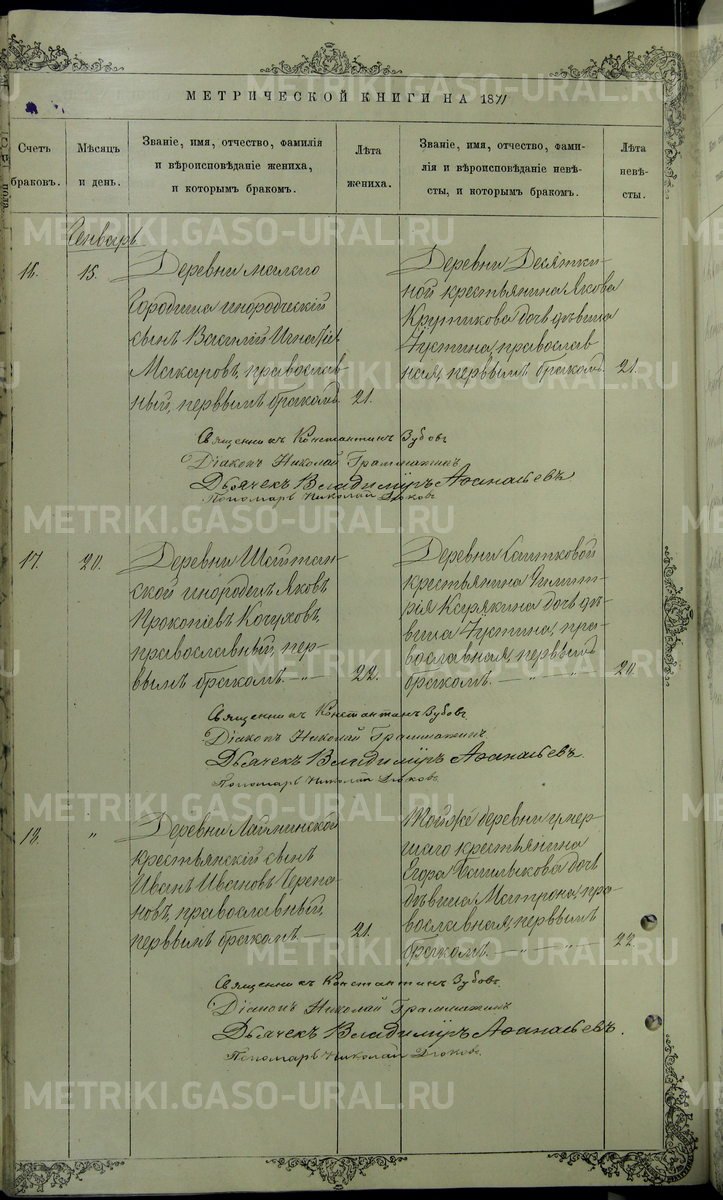 МЕТРИЧЕСКОЙ КНИГИ НА 1871
Счетъ браковъ.
Мѣсяцъ и день.
Званіе, имя, отчество, фамилія
и вѣроисповѣданіе жениха,
и которымъ бракомъ.
Лѣта жениха.
Званіе, имя, отчество, фами-
лія и вѣроисповѣданіе невѣ-
сты, и которымъ бракомъ.
Лѣта невѣ-
сты.
Генварь
16.
15.
Деревни малаго
Городища инородческій
сынъ Василій Игнатіев
Макаровъ, православ
ный, первымъ бракомъ.
21.
Деревни Десятки-
ной крестьянина Якова
Крутикова дочь дѣвица
Устина, православ
ная, первымъ бракомъ.
21.
Священникъ Константинъ Зубовъ
Діаконъ Николай Грамматинъ
Дьячекъ Владиміръ Аѳанасьевъ
Пономарь Николай
17.
20.
Деревни Шайтан-
ской инородецъ Яковъ
Прокопіевъ Кочуховъ,
православный, пер-
вымъ бракомъ. —„—
22.
Деревни
крестьянина Димит-
рія Корякина дочь дѣ-
вица Устина, пра-
вославная, первымъ
бракомъ. — „ — „ —
20.
Священникъ Константинъ Зубовъ
Діаконъ Николай Грамматинъ
Дьячекъ Владиміръ Аѳанасьевъ
Пономарь Николай
18.
„
Деревни Лайминской
крестьянскій сынъ
Иванъ Ивановъ Черепа-
новъ, православный,
первымъ бракомъ. —
21.
Тойже деревни умер-
шаго крестьянина
Егора дочь
дѣвица Матрона, пра-
вославная, первымъ
бракомъ. — „ — „ —
22.
Священникъ Константинъ Зубовъ
Діаконъ Николай Грамматинъ
Дьячекъ Владиміръ Аѳанасьевъ.
Пономарь Николай
METRIKI.GASO-URAL.RU